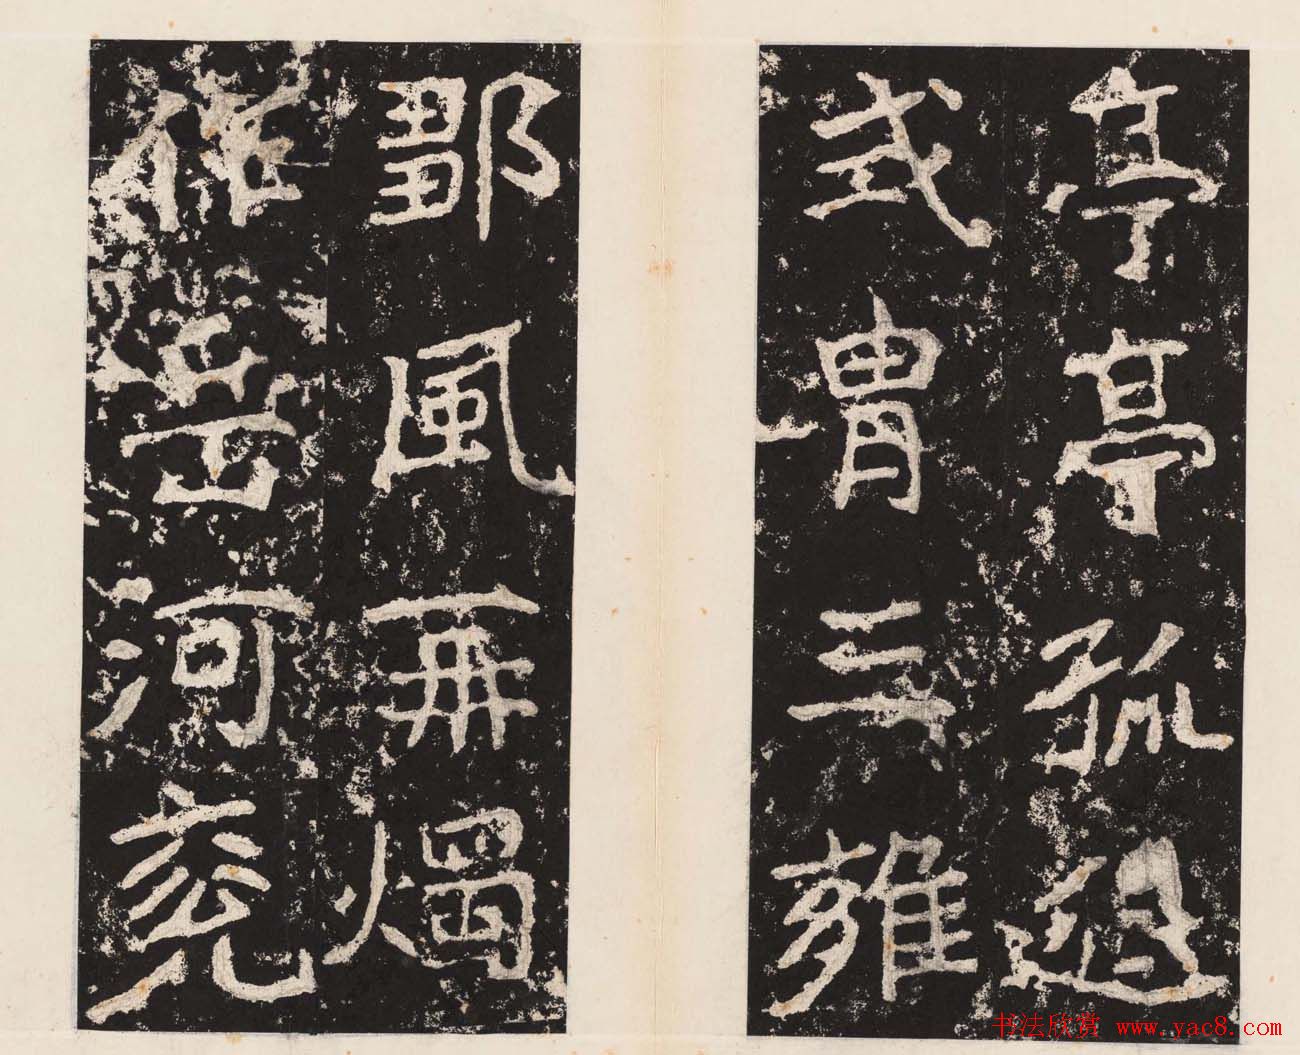 亭亭孤
式胄三雍
鄒風再燭
作岳河兗
书法欣赏 www.yac8.com